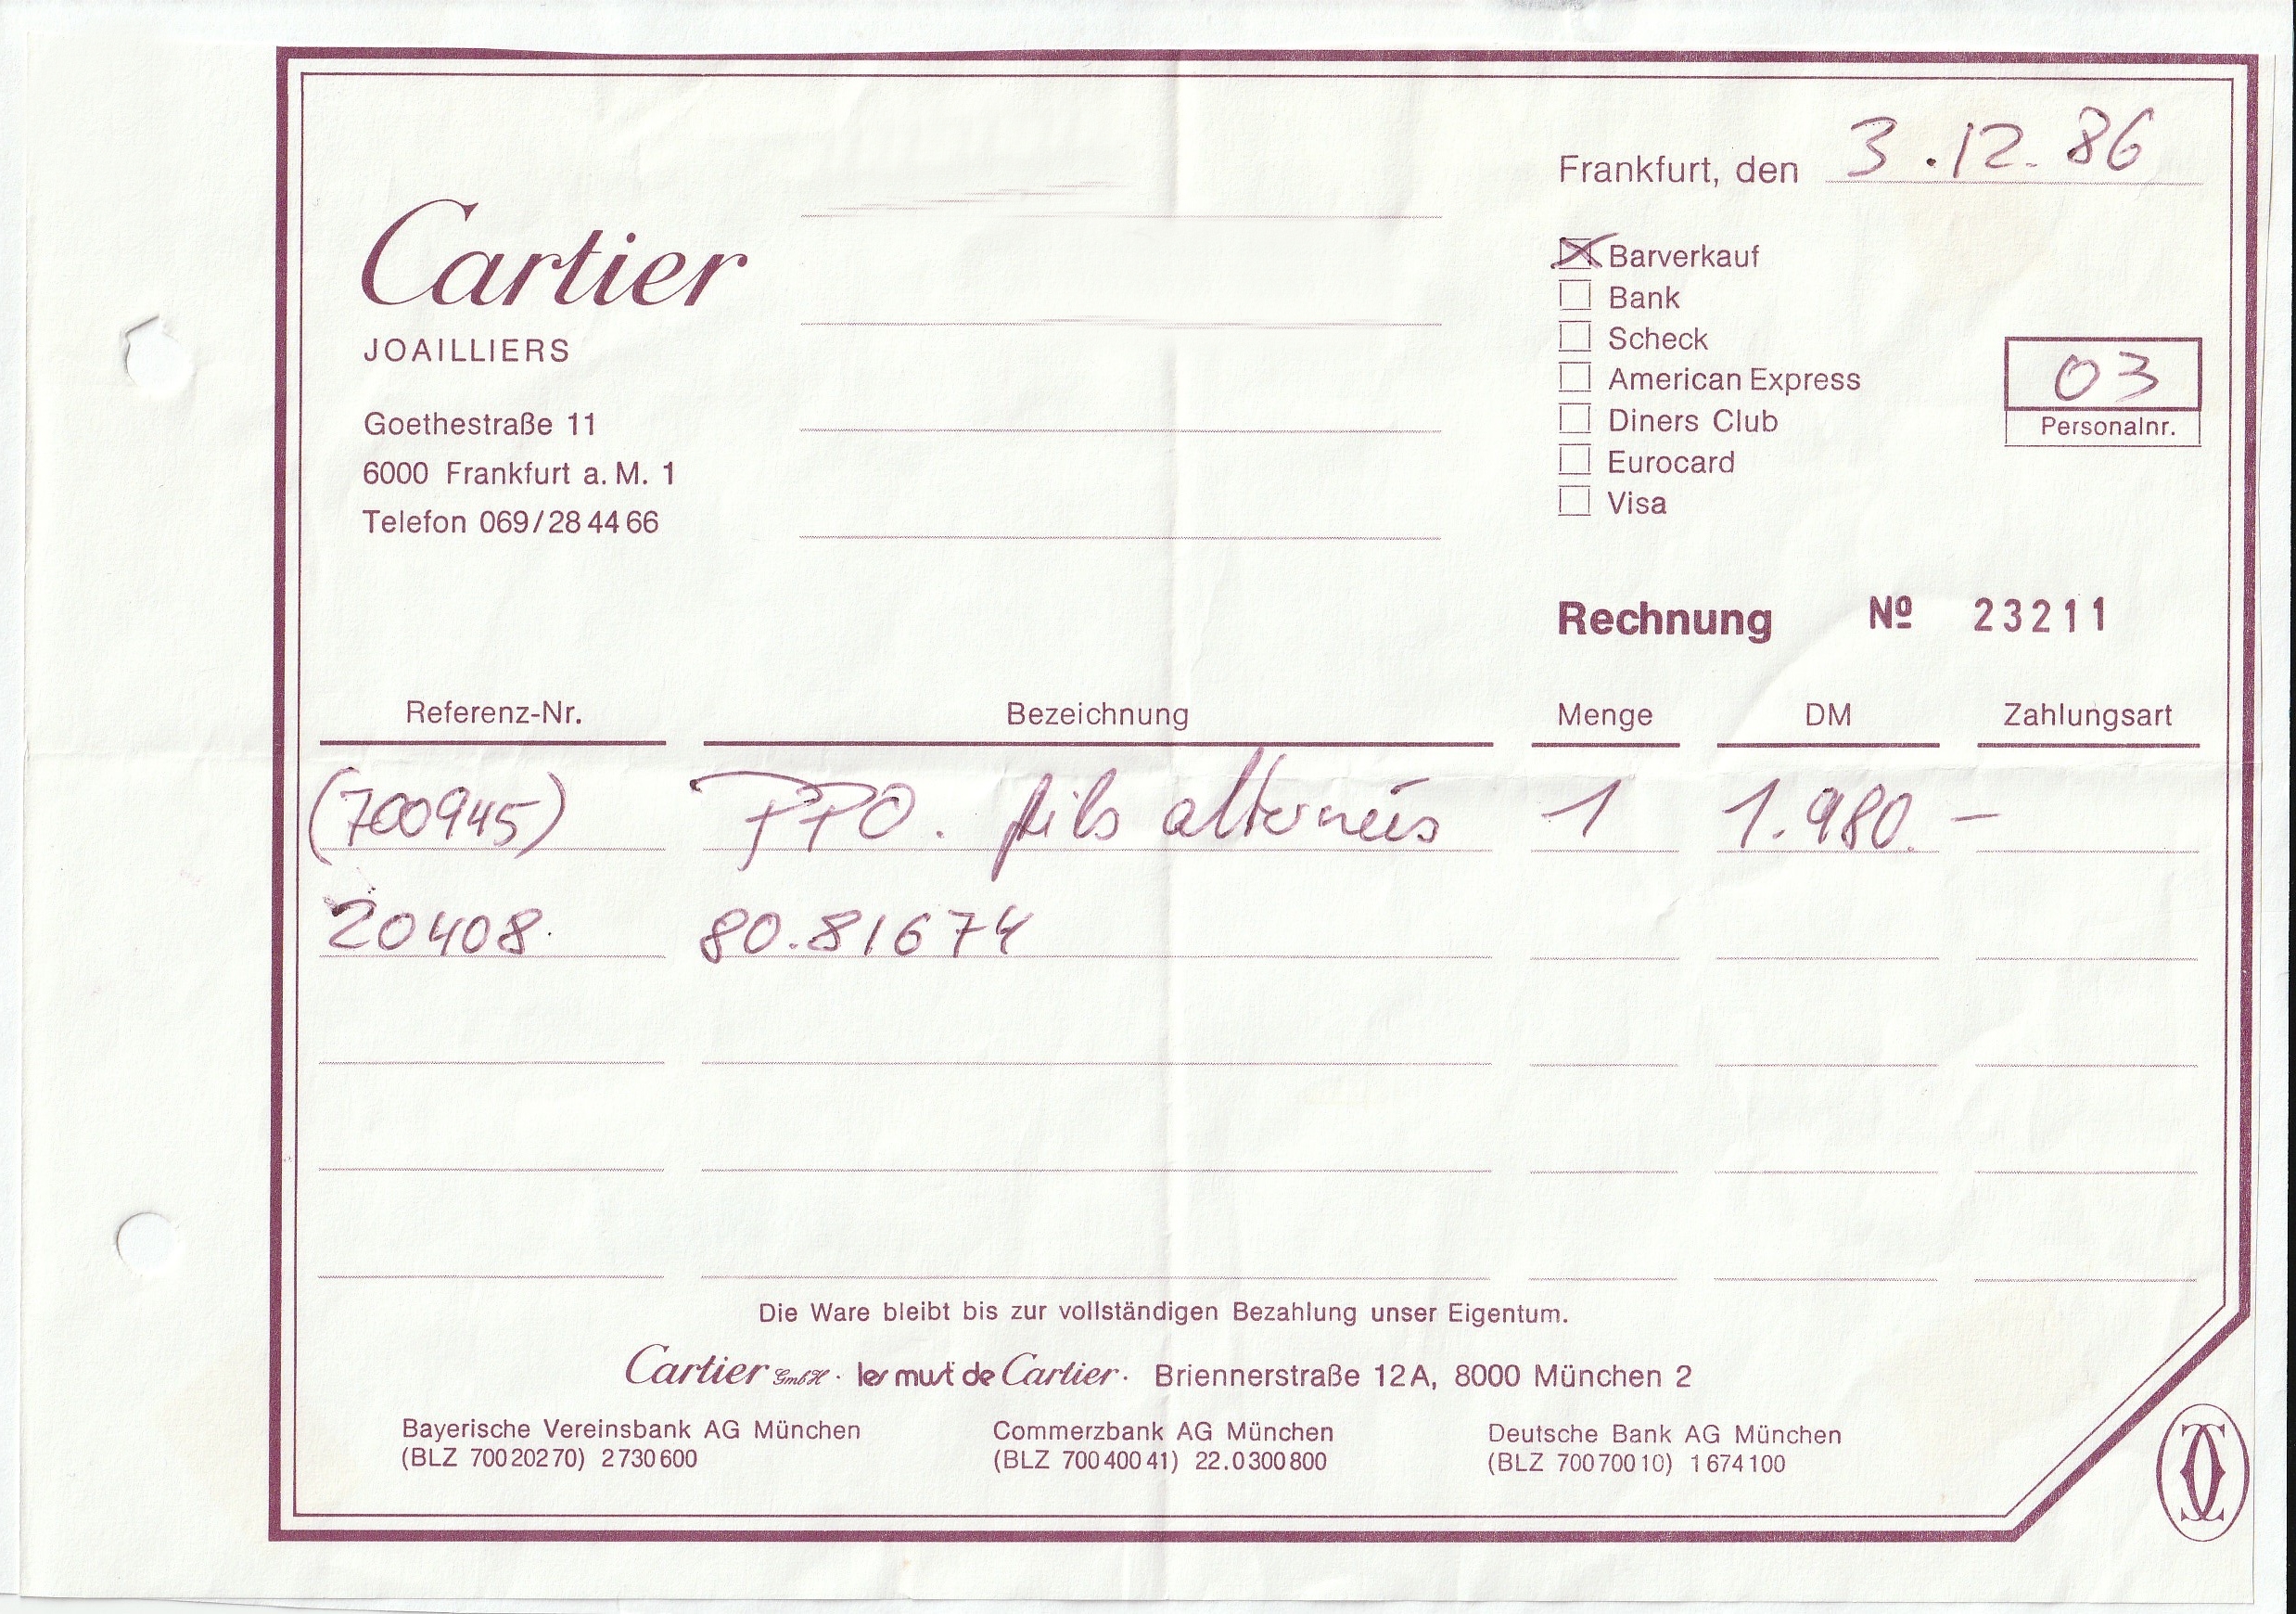 Frankfurt, den 3.12.86
Cartier
JOAILLIERS
Goethestraße 11
6000 Frankfurt a. M. 1
Telefon 069/28 44 66
Barverkauf
Bank
Scheck
American Express
Diners Club
Eurocard
Visa
03
Personalnr.
Rechnung Nº 23211
Referenz-Nr. Bezeichnung Menge DM Zahlungsart
(700945) PPO. fils alternés 1 1.980.-
20408. 80.81674
Die Ware bleibt bis zur vollständigen Bezahlung unser Eigentum.
Cartier GmbH · les must de Cartier · Briennerstraße 12A, 8000 München 2
Bayerische Vereinsbank AG München Commerzbank AG München Deutsche Bank AG München
(BLZ 700 202 70) 2 730 600 (BLZ 700 400 41) 22.0 300 800 (BLZ 700 700 10) 1 674 100